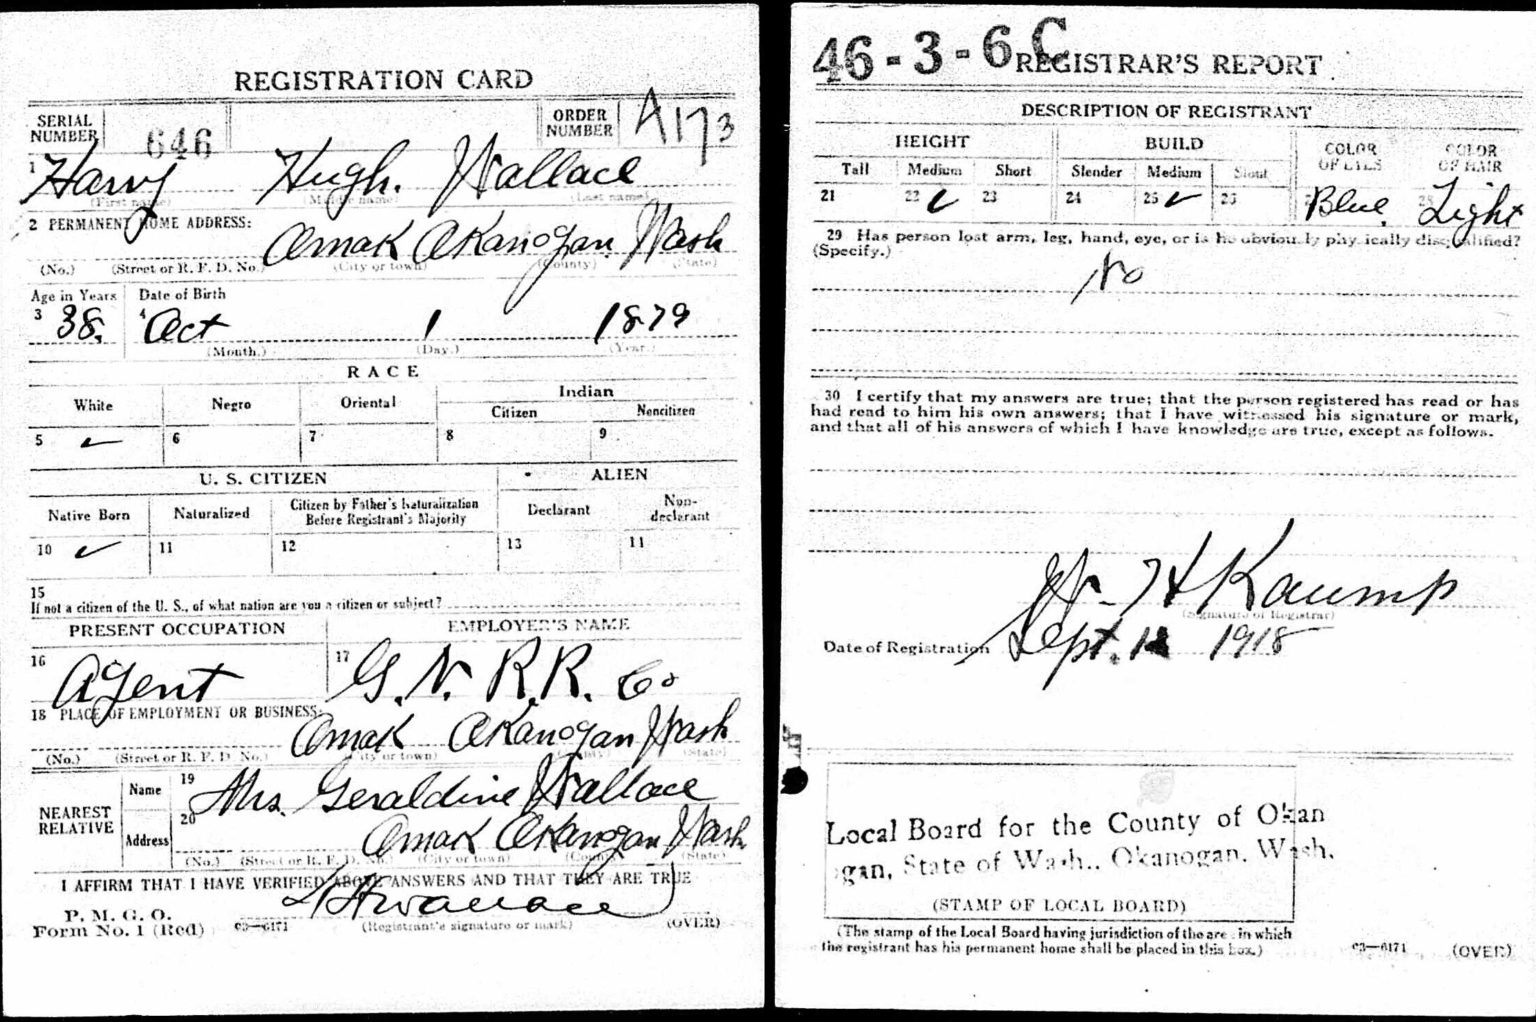 REGISTRATION CARD
SERIAL NUMBER 646 ORDER NUMBER A1173
1 Harry Hugh. Wallace
(First name) (Middle name) (Last name)
2 PERMANENT HOME ADDRESS:
Omak Okanogan Wash
(No.) (Street or R. F. D. No.) (City or town) (County) (State)
Age in Years Date of Birth
3 38. 4 Oct 1 1879
(Month.) (Day.) (Year.)
RACE
White Negro Oriental Indian
Citizen Noncitizen
5 ✓ 6 7 8 9
U. S. CITIZEN ALIEN
Native Born Naturalized Citizen by Father's Naturalization Before Registrant's Majority Declarant Non-declarant
10 ✓ 11 12 13 11
15
If not a citizen of the U. S., of what nation are you a citizen or subject?
PRESENT OCCUPATION EMPLOYER'S NAME
16 Agent 17 G. N. R.R. Co
18 PLACE OF EMPLOYMENT OR BUSINESS:
Omak Okanogan Wash
(No.) (Street or R. F. D. No.) (City or town) (County) (State)
NEAREST RELATIVE
Name 19 Mrs. Geraldine Wallace
Address 20 Omak Okanogan Wash
(No.) (Street or R. F. D. No.) (City or town) (County) (State)
I AFFIRM THAT I HAVE VERIFIED ABOVE ANSWERS AND THAT THEY ARE TRUE
P. M. G. O.
Form No. 1 (Red) 03—6171 HHWallace
(Registrant's signature or mark) (OVER)
46-3-6 C
REGISTRAR'S REPORT
DESCRIPTION OF REGISTRANT
HEIGHT BUILD COLOR OF EYES COLOR OF HAIR
Tall Medium Short Slender Medium Stout
21 22 ✓ 23 24 25 ✓ 26 Blue. 28 Light
29 Has person lost arm, leg, hand, eye, or is he obviously physically disqualified?
(Specify.)
No
30 I certify that my answers are true; that the person registered has read or has
had read to him his own answers; that I have witnessed his signature or mark,
and that all of his answers of which I have knowledge are true, except as follows.
W. H Kaump
(Signature of Registrar)
Date of Registration Sept. 12 1918
Local Board for the County of Okan
ogan, State of Wash., Okanogan, Wash.
(STAMP OF LOCAL BOARD)
(The stamp of the Local Board having jurisdiction of the area in which
the registrant has his permanent home shall be placed in this box.)
03—6171 (OVER)